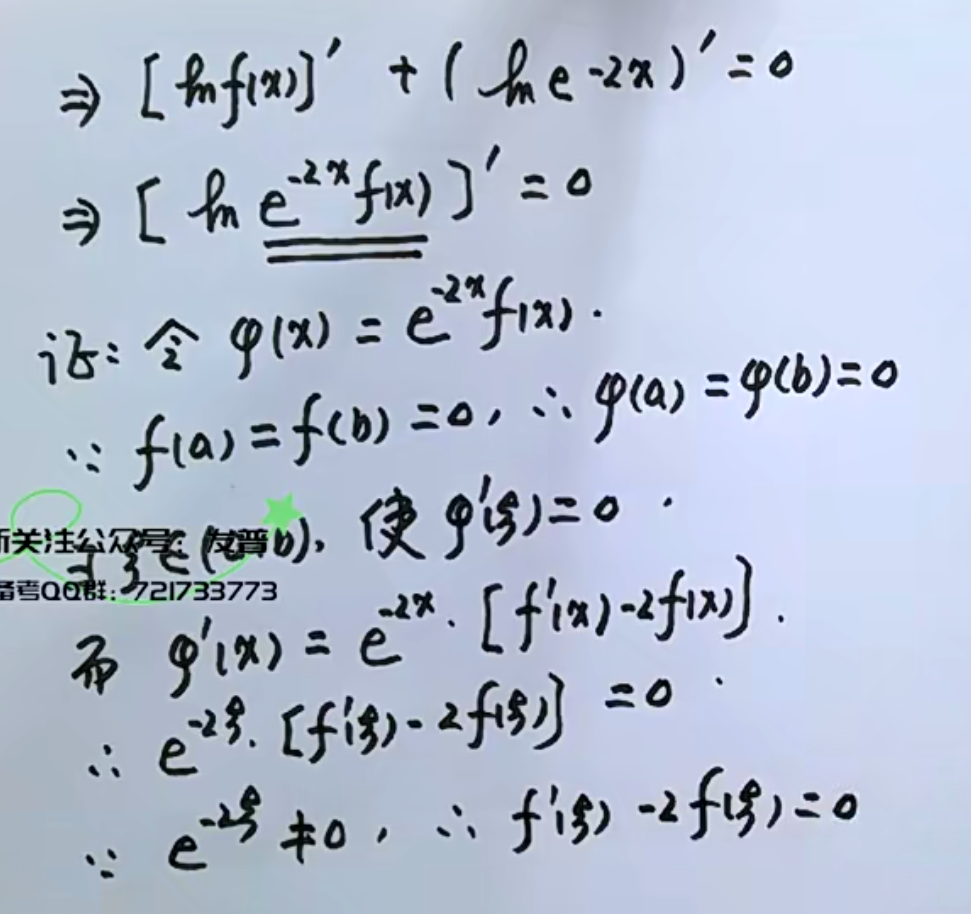 ⇒ [ln f(x)]′ + (ln e^{-2x})′ = 0
⇒ [ln e^{-2x} f(x)]′ = 0
证: 令 φ(x) = e^{-2x} f(x).
∵ f(a) = f(b) = 0, ∴ φ(a) = φ(b) = 0
∃ ξ ∈ (a, b), 使 φ′(ξ) = 0.
关注公众号: 发普
备考QQ群: 721733773
而 φ′(x) = e^{-2x}·[f′(x) - 2f(x)].
∴ e^{-2ξ}·[f′(ξ) - 2f(ξ)] = 0.
∵ e^{-2ξ} ≠ 0, ∴ f′(ξ) - 2f(ξ) = 0